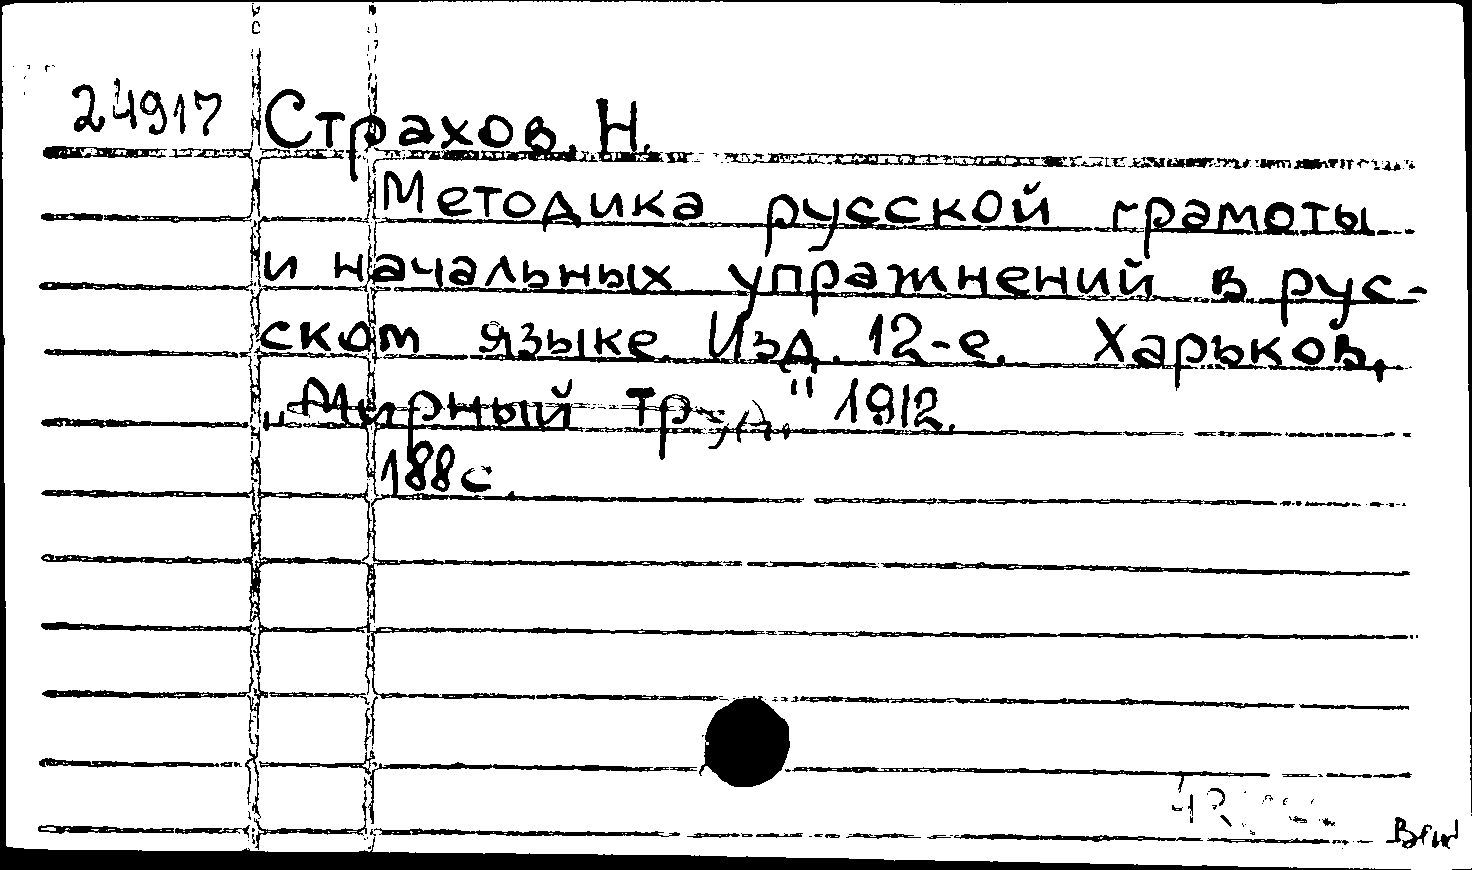 24917 Страхов, Н.
Методика русской грамоты
и начальных упражнений в рус-
ском языке. Изд. 12-е. Харьков,
„Мирный труд," 1912.
188 с.